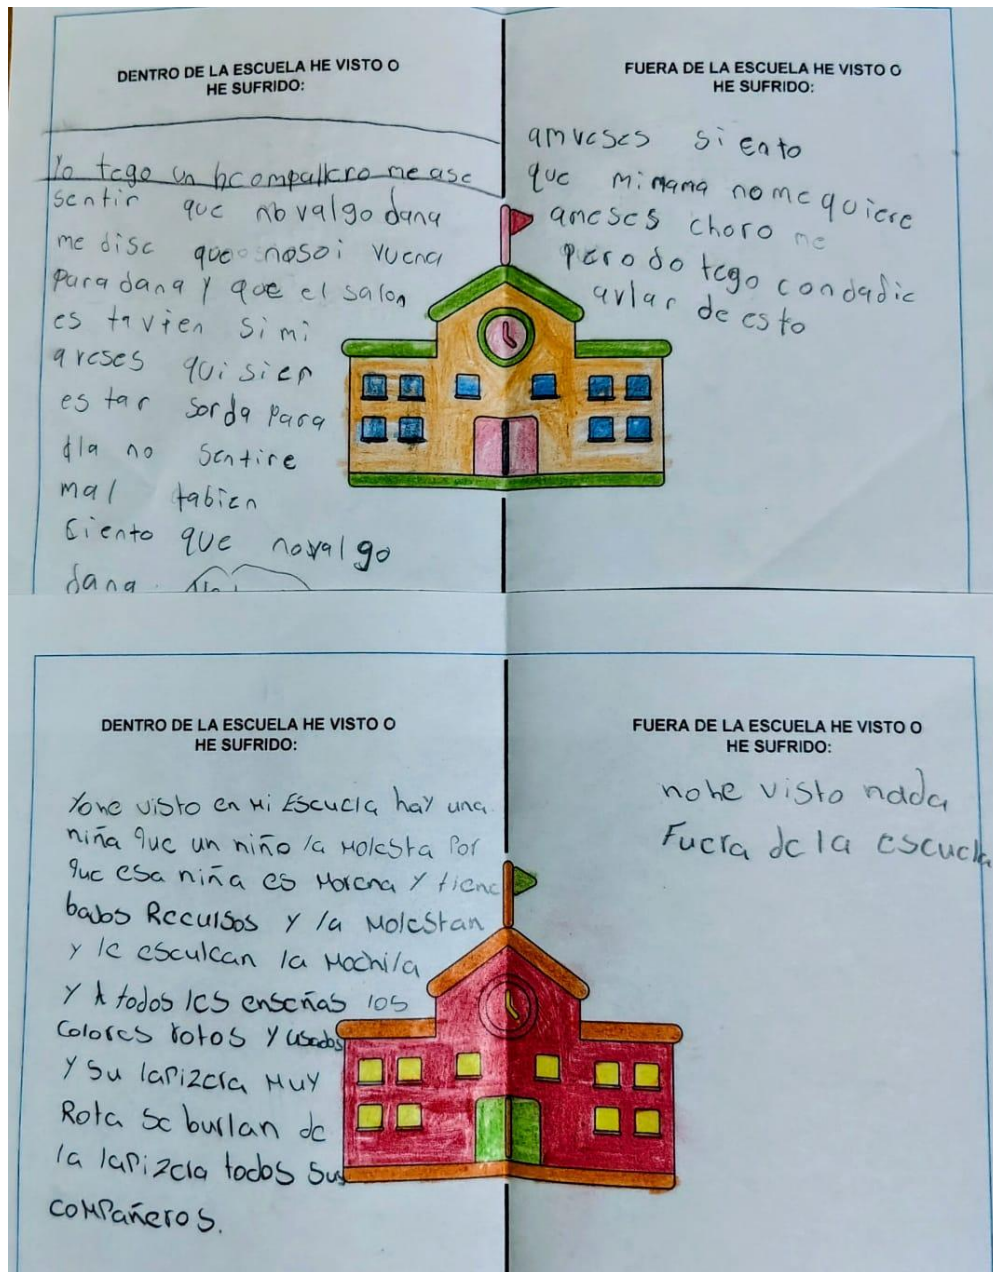 DENTRO DE LA ESCUELA HE VISTO O
HE SUFRIDO:
Yo tego un bcompallero me ase
sentir que nbvalgo dana
me disc que nosoi vuena
para dana y que el salon
es tavien si mi
a veses quisier
estar sorda para
dla no sentire
mal tabien
siento que novalgo
dana.
FUERA DE LA ESCUELA HE VISTO O
HE SUFRIDO:
amveses siento
que mi mama no me quiere
ameses choro me
pero do tego con dadic
avlar de esto
DENTRO DE LA ESCUELA HE VISTO O
HE SUFRIDO:
Yo he visto en mi Escuela hay una
niña que un niño la molesta por
que esa niña es morena y tiene
bajos Recursos y la molestan
y le esculcan la mochila
y A todos les enseñas los
colores rotos y usados
y su lapizera muy
Rota se burlan de
la lapizera todos sus
compañeros.
FUERA DE LA ESCUELA HE VISTO O
HE SUFRIDO:
no he visto nada
Fuera de la escuela